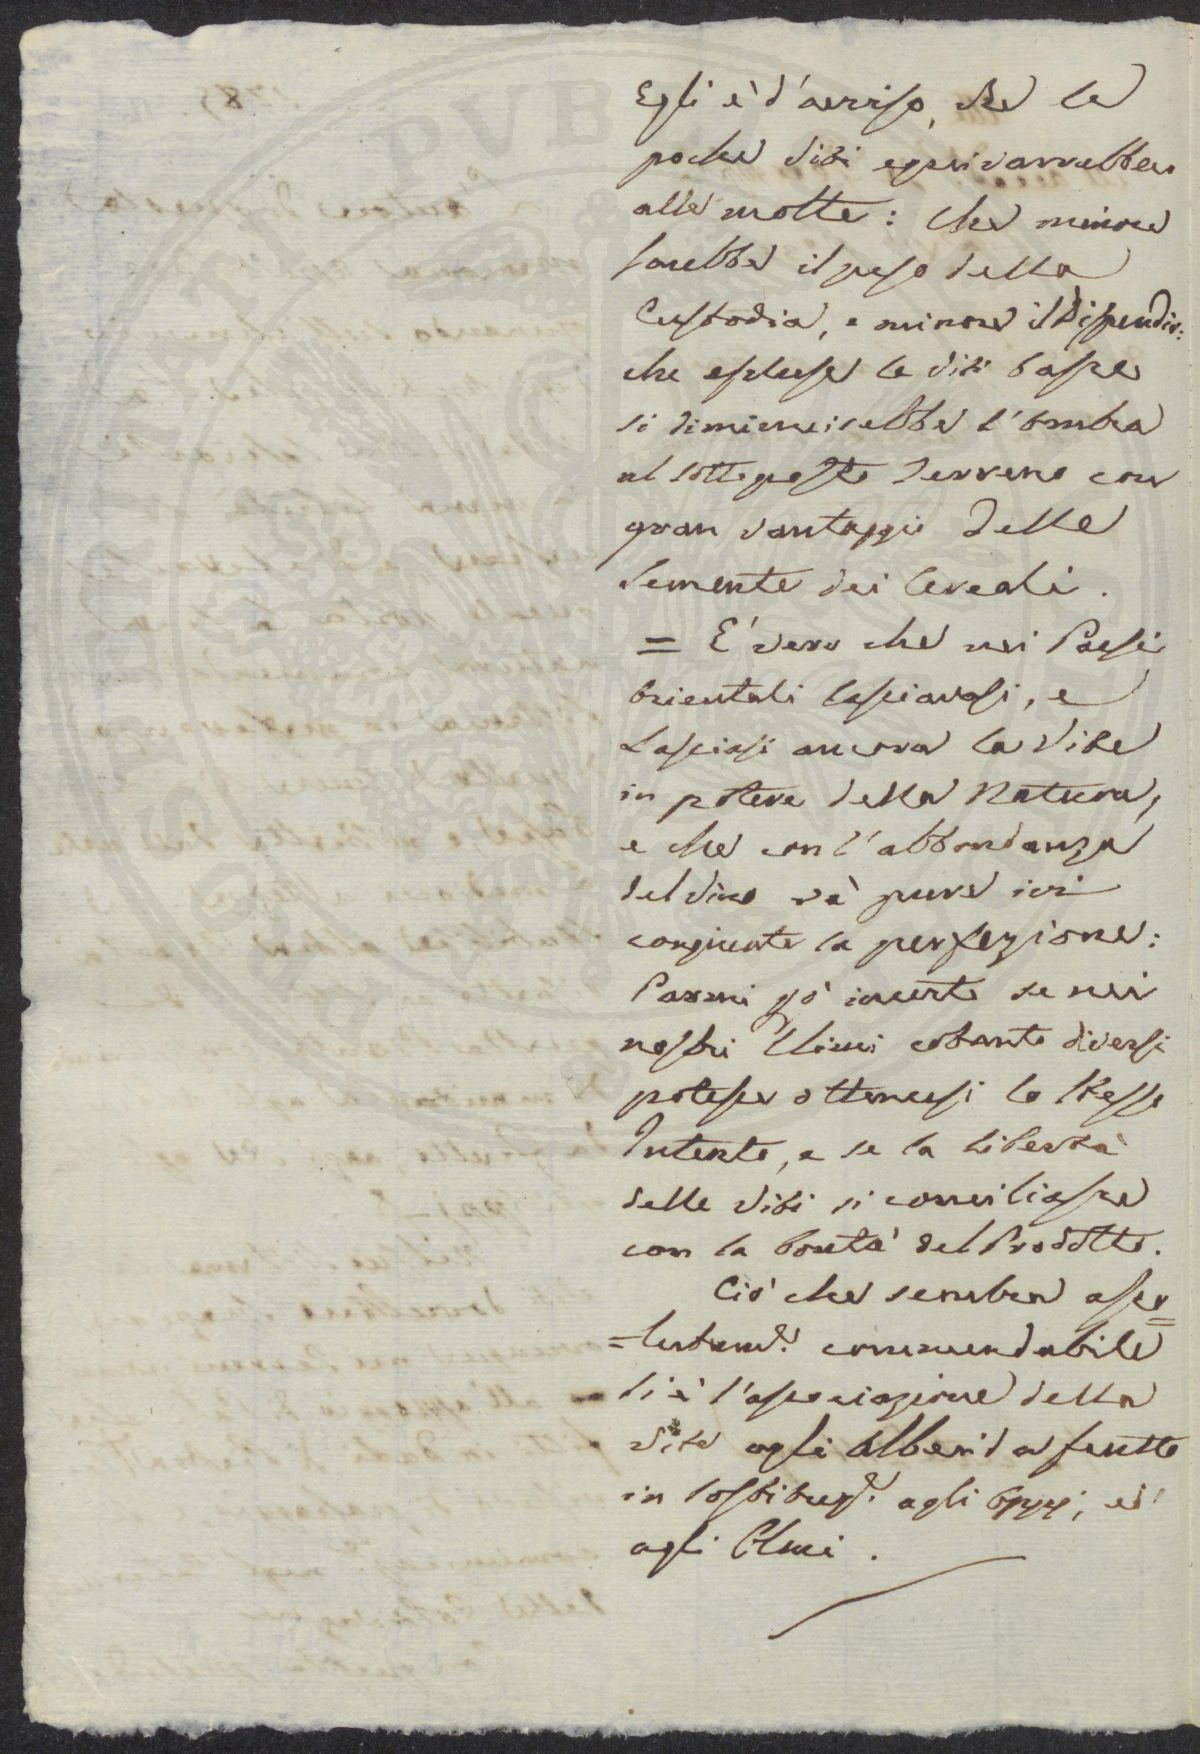 Egli è d'avviso, che le
poche Viti equivarrebbero
alle molte: che minore
sarebbe il peso della
Custodia, e minore il Dispendio:
che escluse le viti basse
si diminuirebbe l'ombra
al sottoposto terreno con
gran vantaggio delle
semente dei Cereali.
= E' vero che nei Paesi
Orientali lasciavasi, e
Lasciasi ancora la Vite
in potere della Natura,
e che con l'abbondanza
del Vino và pure ivi
congiunta la perfezione:
Parmi pò incerto se nei
nostri Climi cotanto diversi
potesse ottenersi lo stesso
Intento, e se la libertà
delle Viti si conciliasse
con la bontà del Prodotto.
Ciò che sembra asso=
=lutam.e commendabile
si è l'associazione della
Vite agli Alberi da frutto
in sostituz.e agli Oppj, ed
agli Olmi.